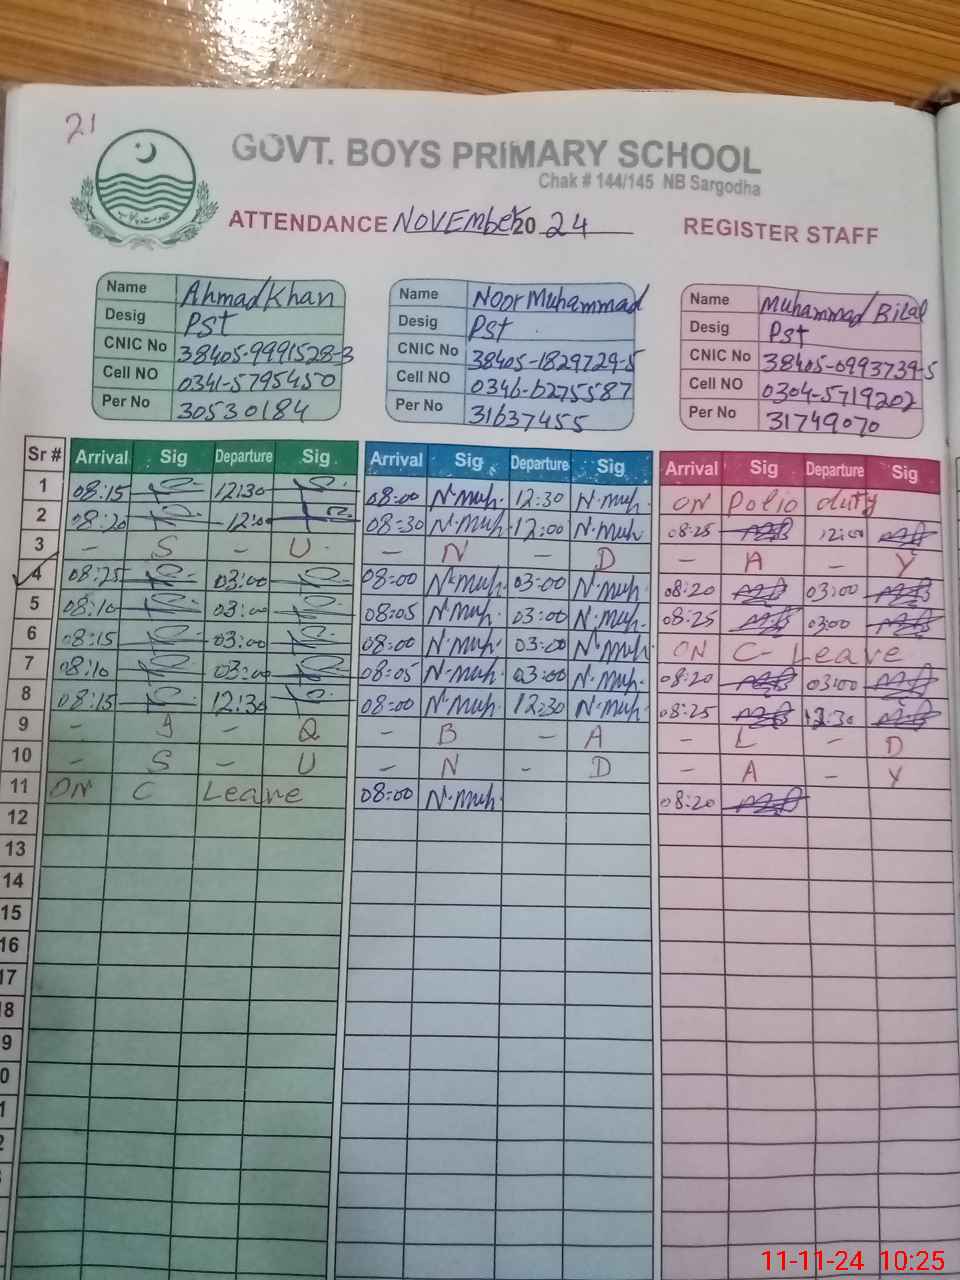 21
GOVT. BOYS PRIMARY SCHOOL
Chak # 144/145 NB Sargodha
ATTENDANCE NOVEMber 20 24 REGISTER STAFF
Name Ahmad Khan
Desig Pst
CNIC No 38405-9991528-3
Cell NO 0341-5795450
Per No 30530184
Name Noor Muhammad
Desig Pst
CNIC No 38405-1829729-5
Cell NO 0346-6275587
Per No 31637455
Name Muhammad Bilal
Desig Pst
CNIC No 38405-6993739-5
Cell NO 0304-5719202
Per No 31749070
Sr # Arrival Sig Departure Sig Arrival Sig Departure Sig Arrival Sig Departure Sig
1 08:15 12:30 08:00 N.muh. 12:30 N.muh. ON Polio duty
2 08:20 12:0 08:30 N.muh. 12:00 N.muh. 08:25 12:00
3 - S - U - N - D - A - Y
4 08:25 03:00 08:00 N.muh. 03:00 N.muh. 08:20 03:00
5 08:10 03:00 08:05 N.muh. 03:00 N.muh. 08:25 03:00
6 08:15 03:00 08:00 N.muh. 03:00 N.muh. ON C- Leave
7 08:10 03:00 08:05 N.muh. 03:00 N.muh. 08:20 03:00
8 08:15 12:30 08:00 N.muh. 12:30 N.muh. 08:25 12:30
9 - I - Q - B - A - L - D
10 - S - U - N - D - A - Y
11 ON C Leave 08:00 N.muh. 08:20
12
13
14
15
16
17
18
9
0
1
2
11-11-24 10:25